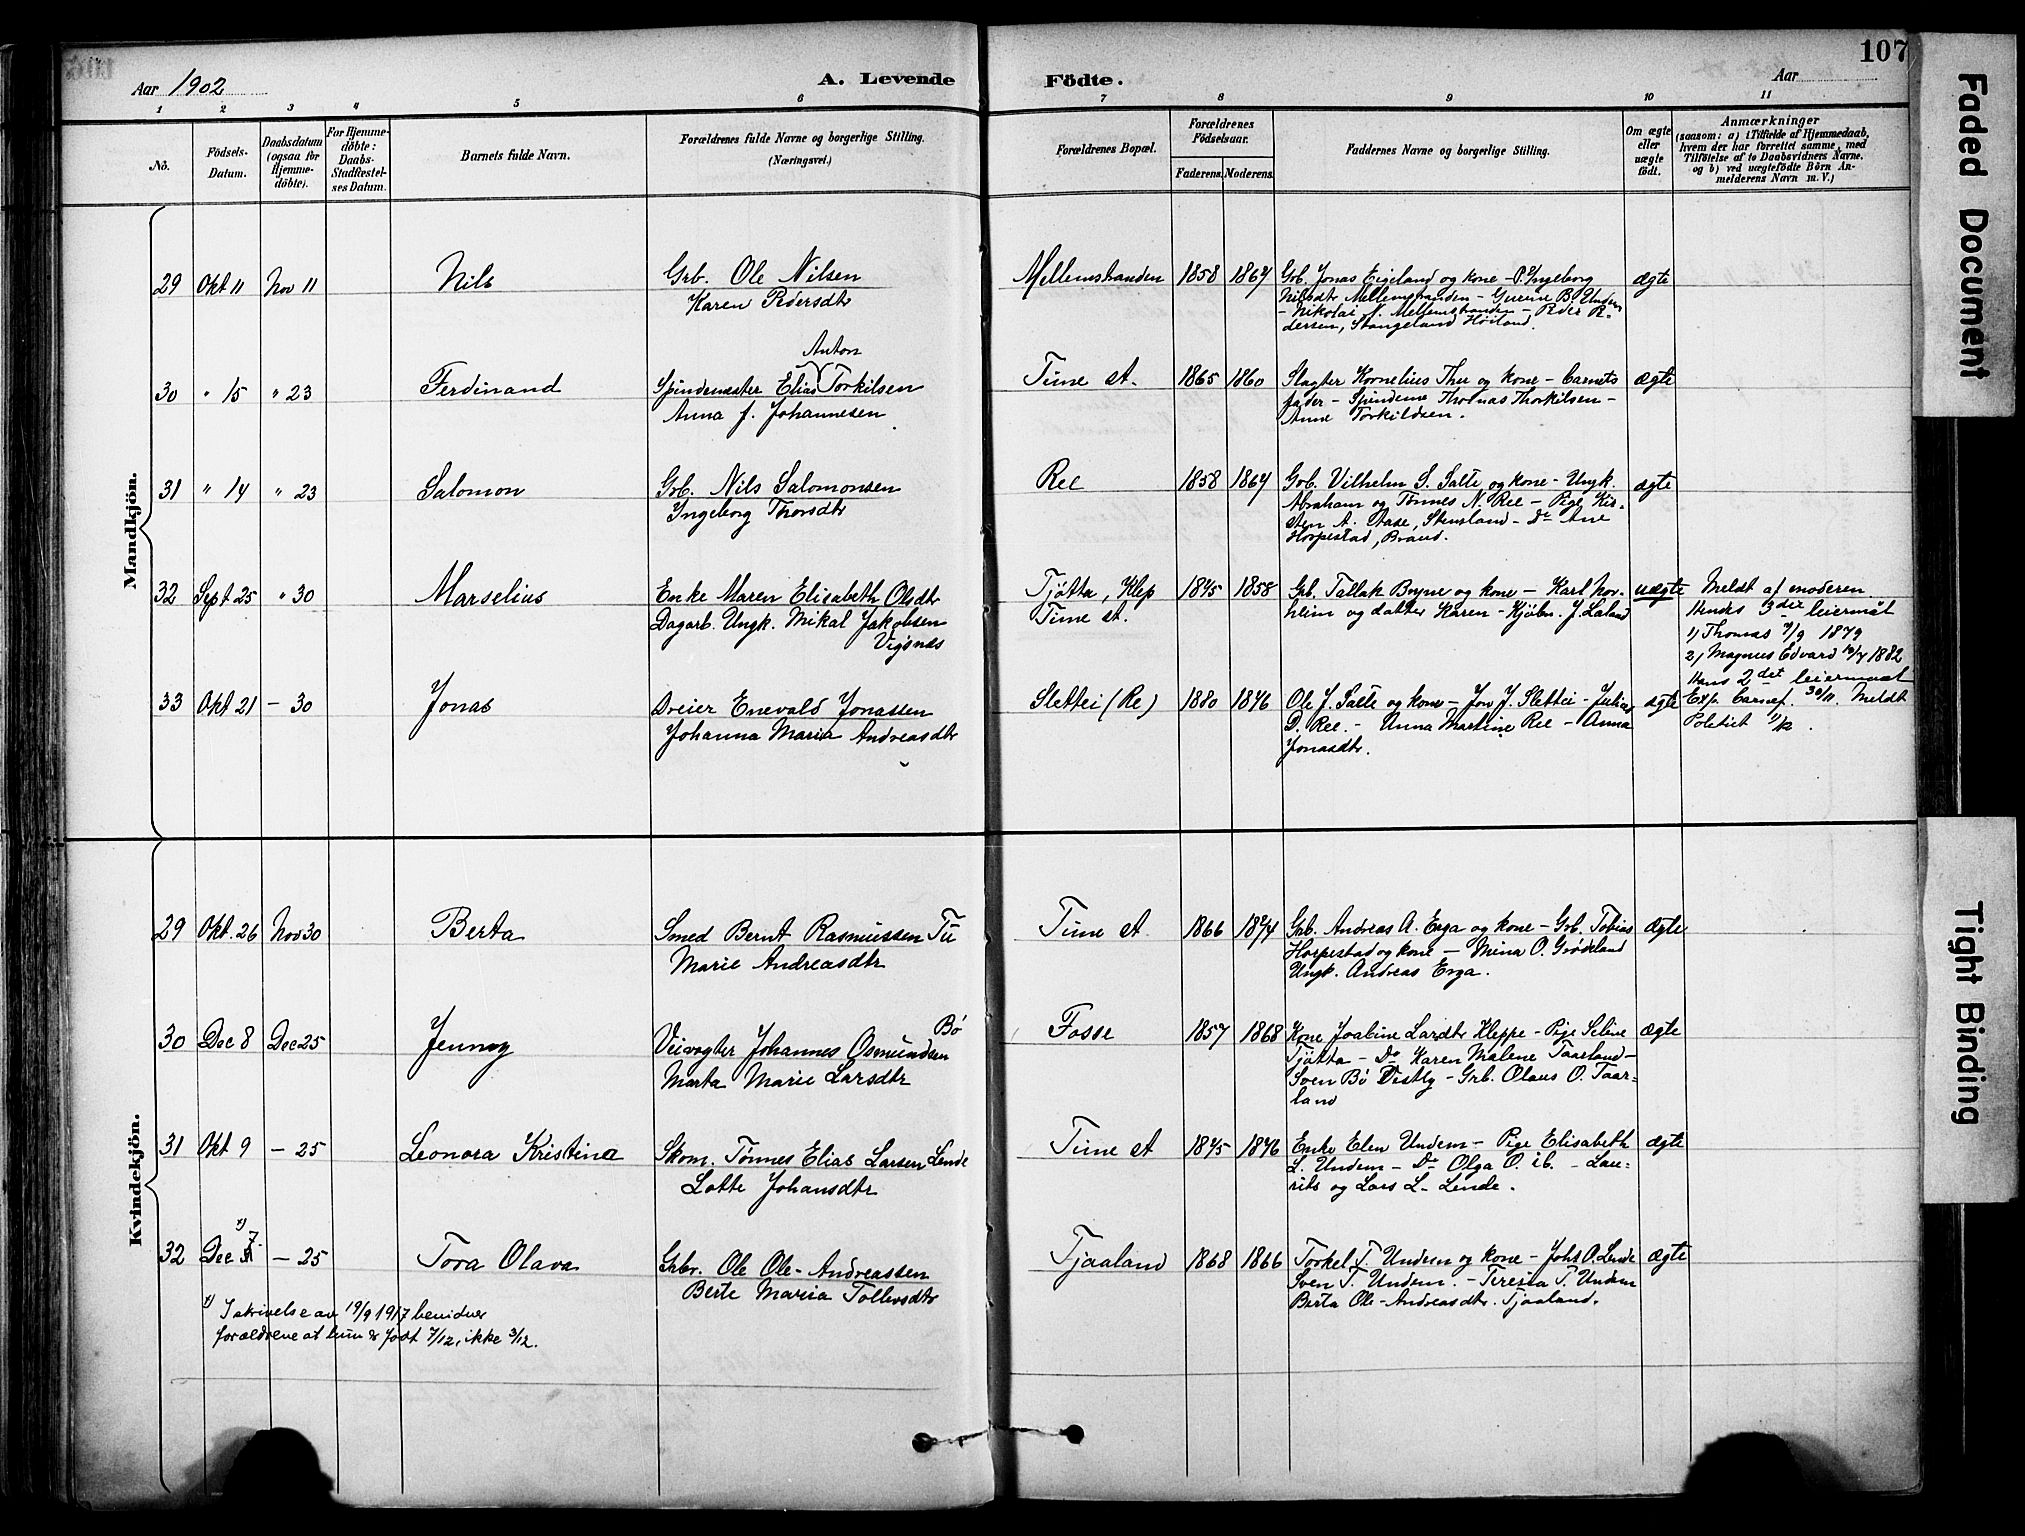 107
Aar 1902
A. Levende Födte.
Aar
1 2 3 4 5 6 7 8 9 10 11
No.
Födsels-Datum.
Daabsdatum (ogsaa for Hjemmedöbte).
For Hjemmedöbte: Daabs-Stadfæstelses Datum.
Barnets fulde Navn.
Forældrenes fulde Navne og borgerlige Stilling.
(Næringsvei.)
Forældrenes Bopæl.
Forældrenes Födselsaar.
Faderens. Moderens.
Faddernes Navne og borgerlige Stilling.
Om ægte eller uægte födt.
Anmærkninger
(saasom: a) i Tilfælde af Hjemmedaab, hvem der har forrettet samme, med Tilföielse af to Daabsvidners Navne. og b) ved uægtefödte Börn Anmelderens Navn m. V.)
Mandkjön.
29 Okt 11 Nov 11 Nils Grb. Ole Nilsen
Karen Pedersdtr
Mellemstranden 1858 1864 Grb. Jonas Eigeland og kone - P. Ingeborg
Nilsdtr Mellemstranden - Gurine B. Undem
- Nikolai J. Mellemstranden - Peder Pe-
dersen, Stangeland Höiland.
ægte
30 " 15 " 23 Ferdinand Spindemester Elias Anton Torkilsen
Anna f. Johannesen
Time st. 1865 1860 Slagter Kornelius Thu og kone - barnets
fader - Spinderne Thomas Thorkilsen -
Anne Torkildsen.
ægte
31 " 14 " 23 Salomon Grb. Nils Salomonsen
Ingeborg Thorsdtr
Ree 1858 1864 Grb. Vilhelm S. Salte og kone - Ungk.
Abraham og Tönnes N. Ree - Pige Kir-
sten A. Aase, Stensland - Do Ane
Horpestad, Braud.
ægte
32 Sept 25 " 30 Marselius Enke Maren Elisabeth Olsdtr
Dagarb. Ungk. Mikal Jakobsen
Vigsnes
Tjøtta, Klep
Time st.
1845 1858 Grb. Tallak Bryne og kone - Karl Nor-
heim og datter Karen - Kjøbm. J. Laland
uægte Meldt af moderen
Hendes 3die leiermål
1) Thomas 1879
2) Magnus Edvard 1882
Hans 2det leiermaal
Exp. barnef. 30/11. Meldt
Politiet 1/12.
33 Okt 21 - 30 Jonas Dreier Enevald Jonassen
Johanna Maria Andreasdtr
Slettei (Re) 1880 1876 Ole J. Salte og kone - Jon J. Slettei - Julius
D. Ree. - Anna Martine Ree - Anna
Jonasdtr.
ægte
Kvindekjön.
29 Okt. 26 Nov 30 Berta Smed Bernt Rasmussen Tu
Marie Andreasdtr
Time st 1866 1874 Grb. Andreas A. Erga og kone - Grb. Tobias
Horpestad og kone - Mina O. Grödeland
Ungk. Andreas Erga.
ægte
30 Dec 8 Dec 25 Jenny Veivogter Johannes Osmundsen Bö
Marta Marie Larsdtr
Fosse 1857 1868 Kone Joabine Larsdtr Kleppe - Pige Seline
Tjøtta - Do Karen Malene Taarland -
Sven Bö Vestly - Grb. Olaus O. Taar-
land
ægte
31 Okt 9 - 25 Leonora Kristina Skom. Tønnes Elias Larsen Lende
Lotte Johansdtr
Time st 1875 1876 Enke Elen Undem - Pige Elisabeth
L. Undem - Do Olga O. ib. - Lau-
rits og Lars L. Lende.
ægte
32 Dec 7. - 25 Tora Olava Gbr. Ole Ole-Andreassen
Berte Maria Tollevsdtr
Tjaaland 1868 1866 Torkel T. Undem og kone - Johs O. Lende
Sven T. Undem. - Teresia T. Undem
Berta Ole-Andreasdtr. Tjaaland.
ægte
x) I skrivelse av 19/9 1917 bevidner
forældrene at hun er født 7/12, ikke 3/12.
Faded Document
Tight Binding